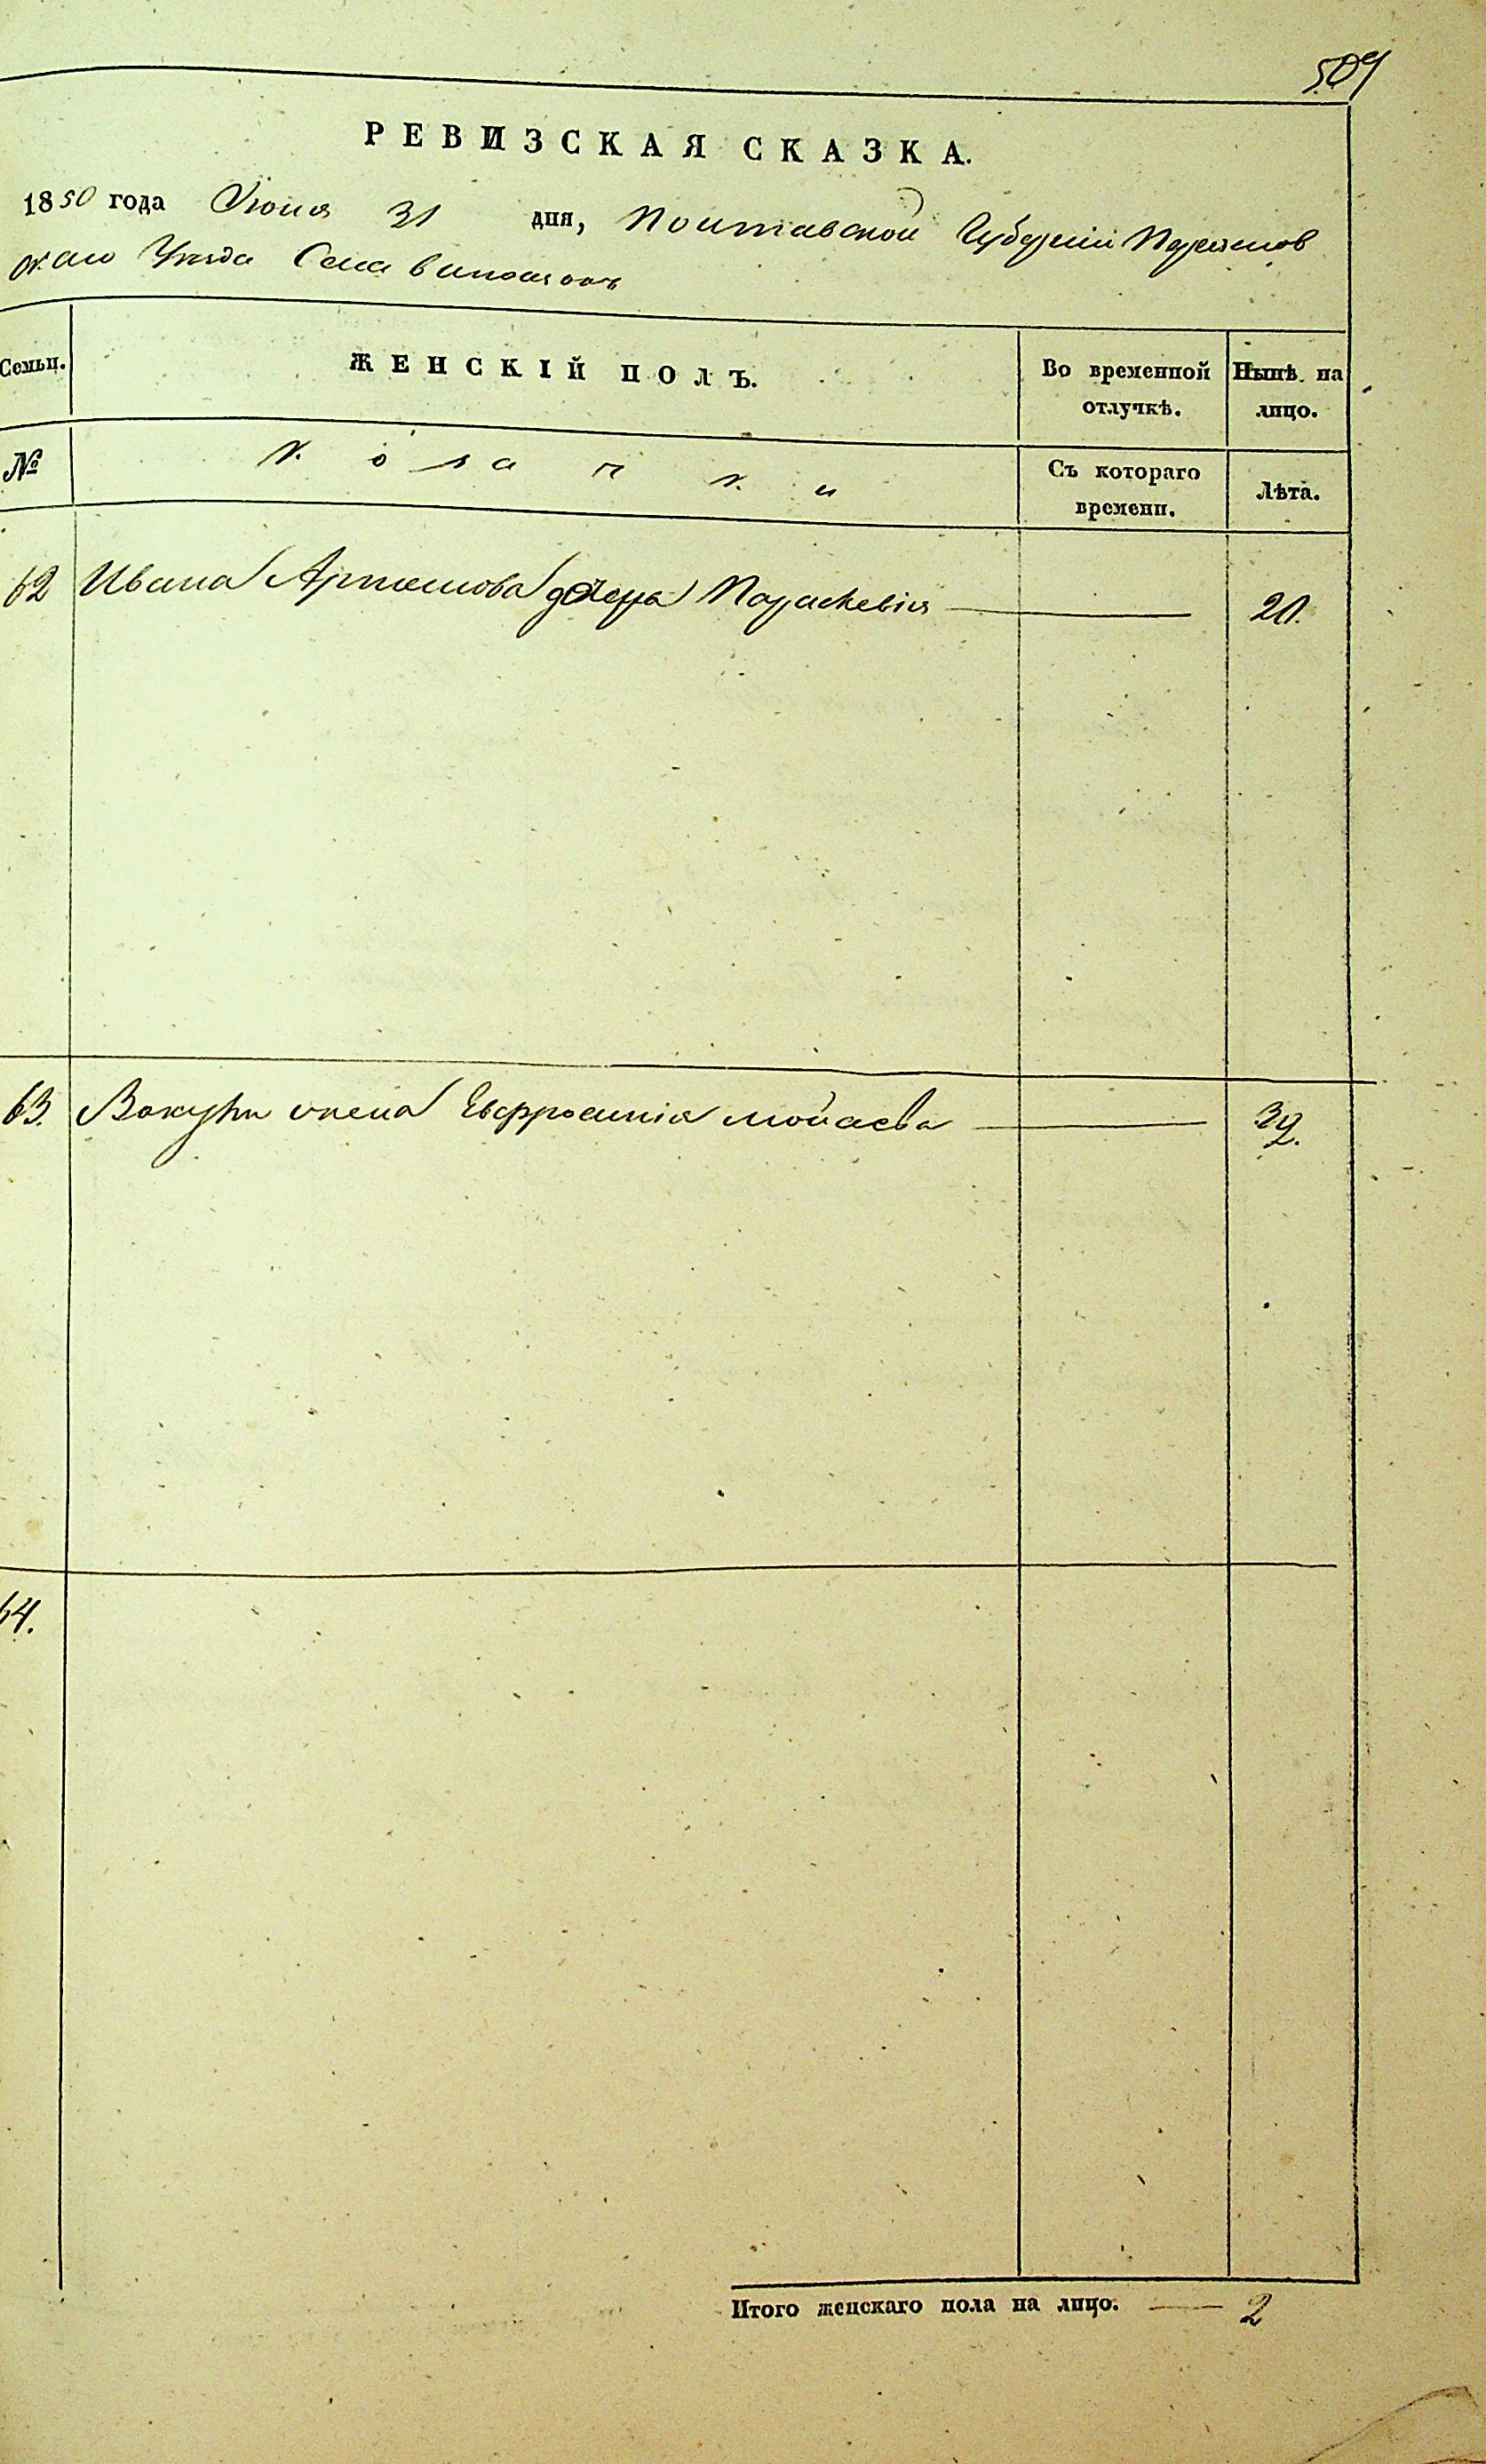 509
РЕВИЗСКАЯ СКАЗКА.
1850 года Июня 31 дня, Полтавской Губерніи Переяслов
скаго Уезда Села
Семьи. ЖЕНСКІЙ ПОЛЪ. Во временной отлучкѣ. Нынѣ на лицо.
№ Козачки Съ котораго времени. Лѣта.
62 Ивана Артемова дочерь Параскевія 20.
63. Вакулы жена Евфросинія Моисеева 32.
64.
Итого женскаго пола на лицо. 2